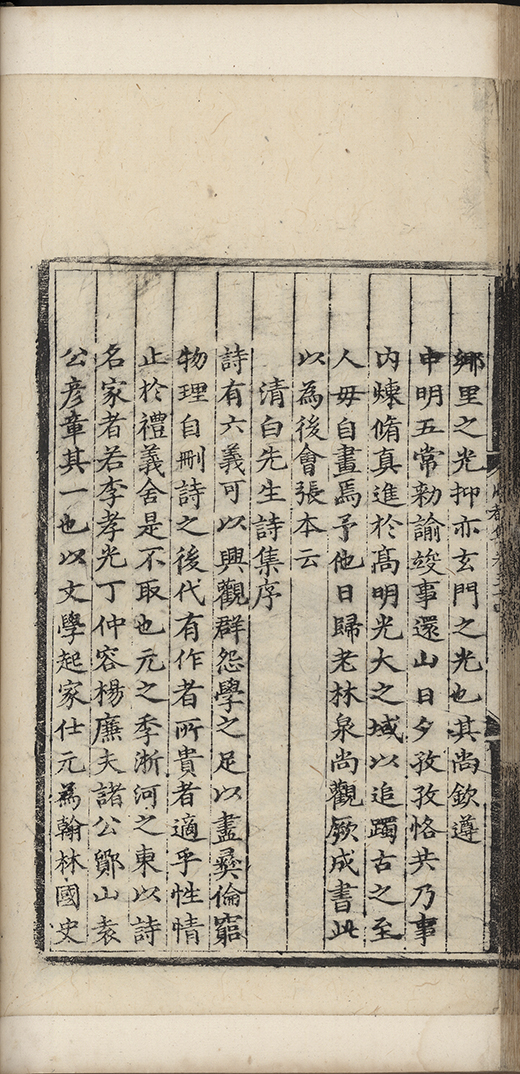 鄉里之光抑亦玄門之光也其尚欽遵
申明五常勑諭竣事還山日夕孜孜恪共乃事
内煉脩真進於髙明光大之域以追躅古之至
人毋自畫焉予他日歸老林泉尚觀厥成書此
以為後會張本云
清白先生詩集序
詩有六義可以興觀群怨學之足以盡彛倫窮
物理自刪詩之後代有作者所貴者適乎性情
止於禮義舍是不取也元之季淛河之東以詩
名家者若李孝光丁仲容楊廉夫諸公鄮山袁
公彦章其一也以文學起家仕元為翰林國史